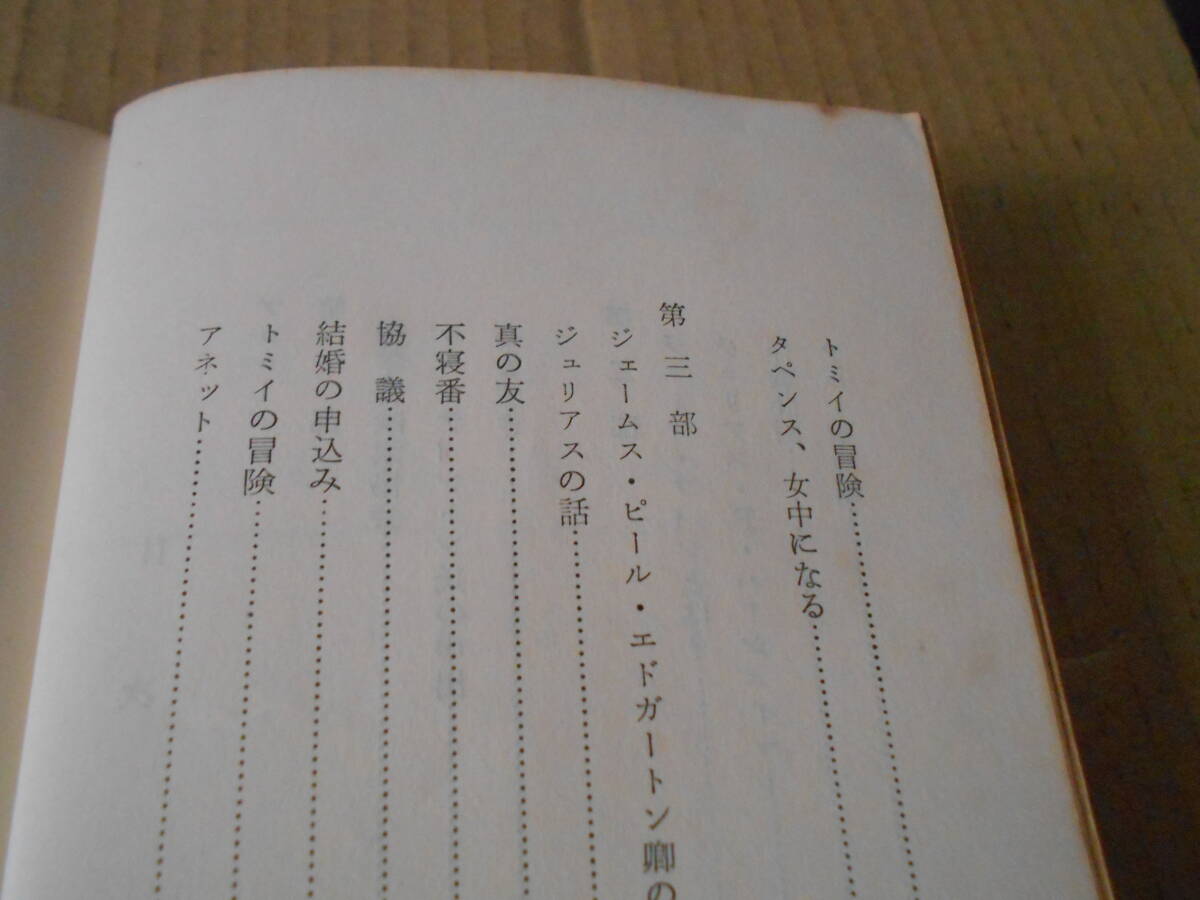 トミイの冒険……………………
タペンス、女中になる……………
第三部
ジェームス・ピール・エドガートン卿の
ジュリアスの話……………………
真の友……………………
不寝番……………………
協議……………………
結婚の申込み……………………
トミイの冒険……………………
アネット……………………